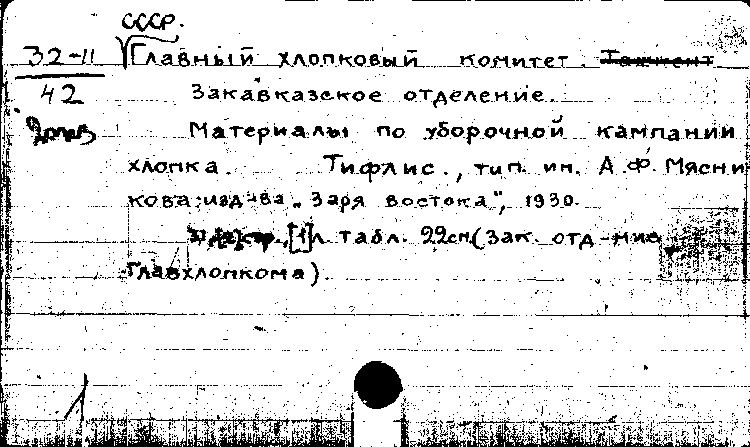 СССР.
32-11 Главный хлопковый комитет.
42 Закавказское отделение.
Материалы по уборочной кампании
хлопка. Тифлис., тип. им. А.Ф. Мясни
кова; изд-ва „Заря востока", 1930.
[1] л. табл. 22см. (Зак. отд-ние
Главхлопкома).